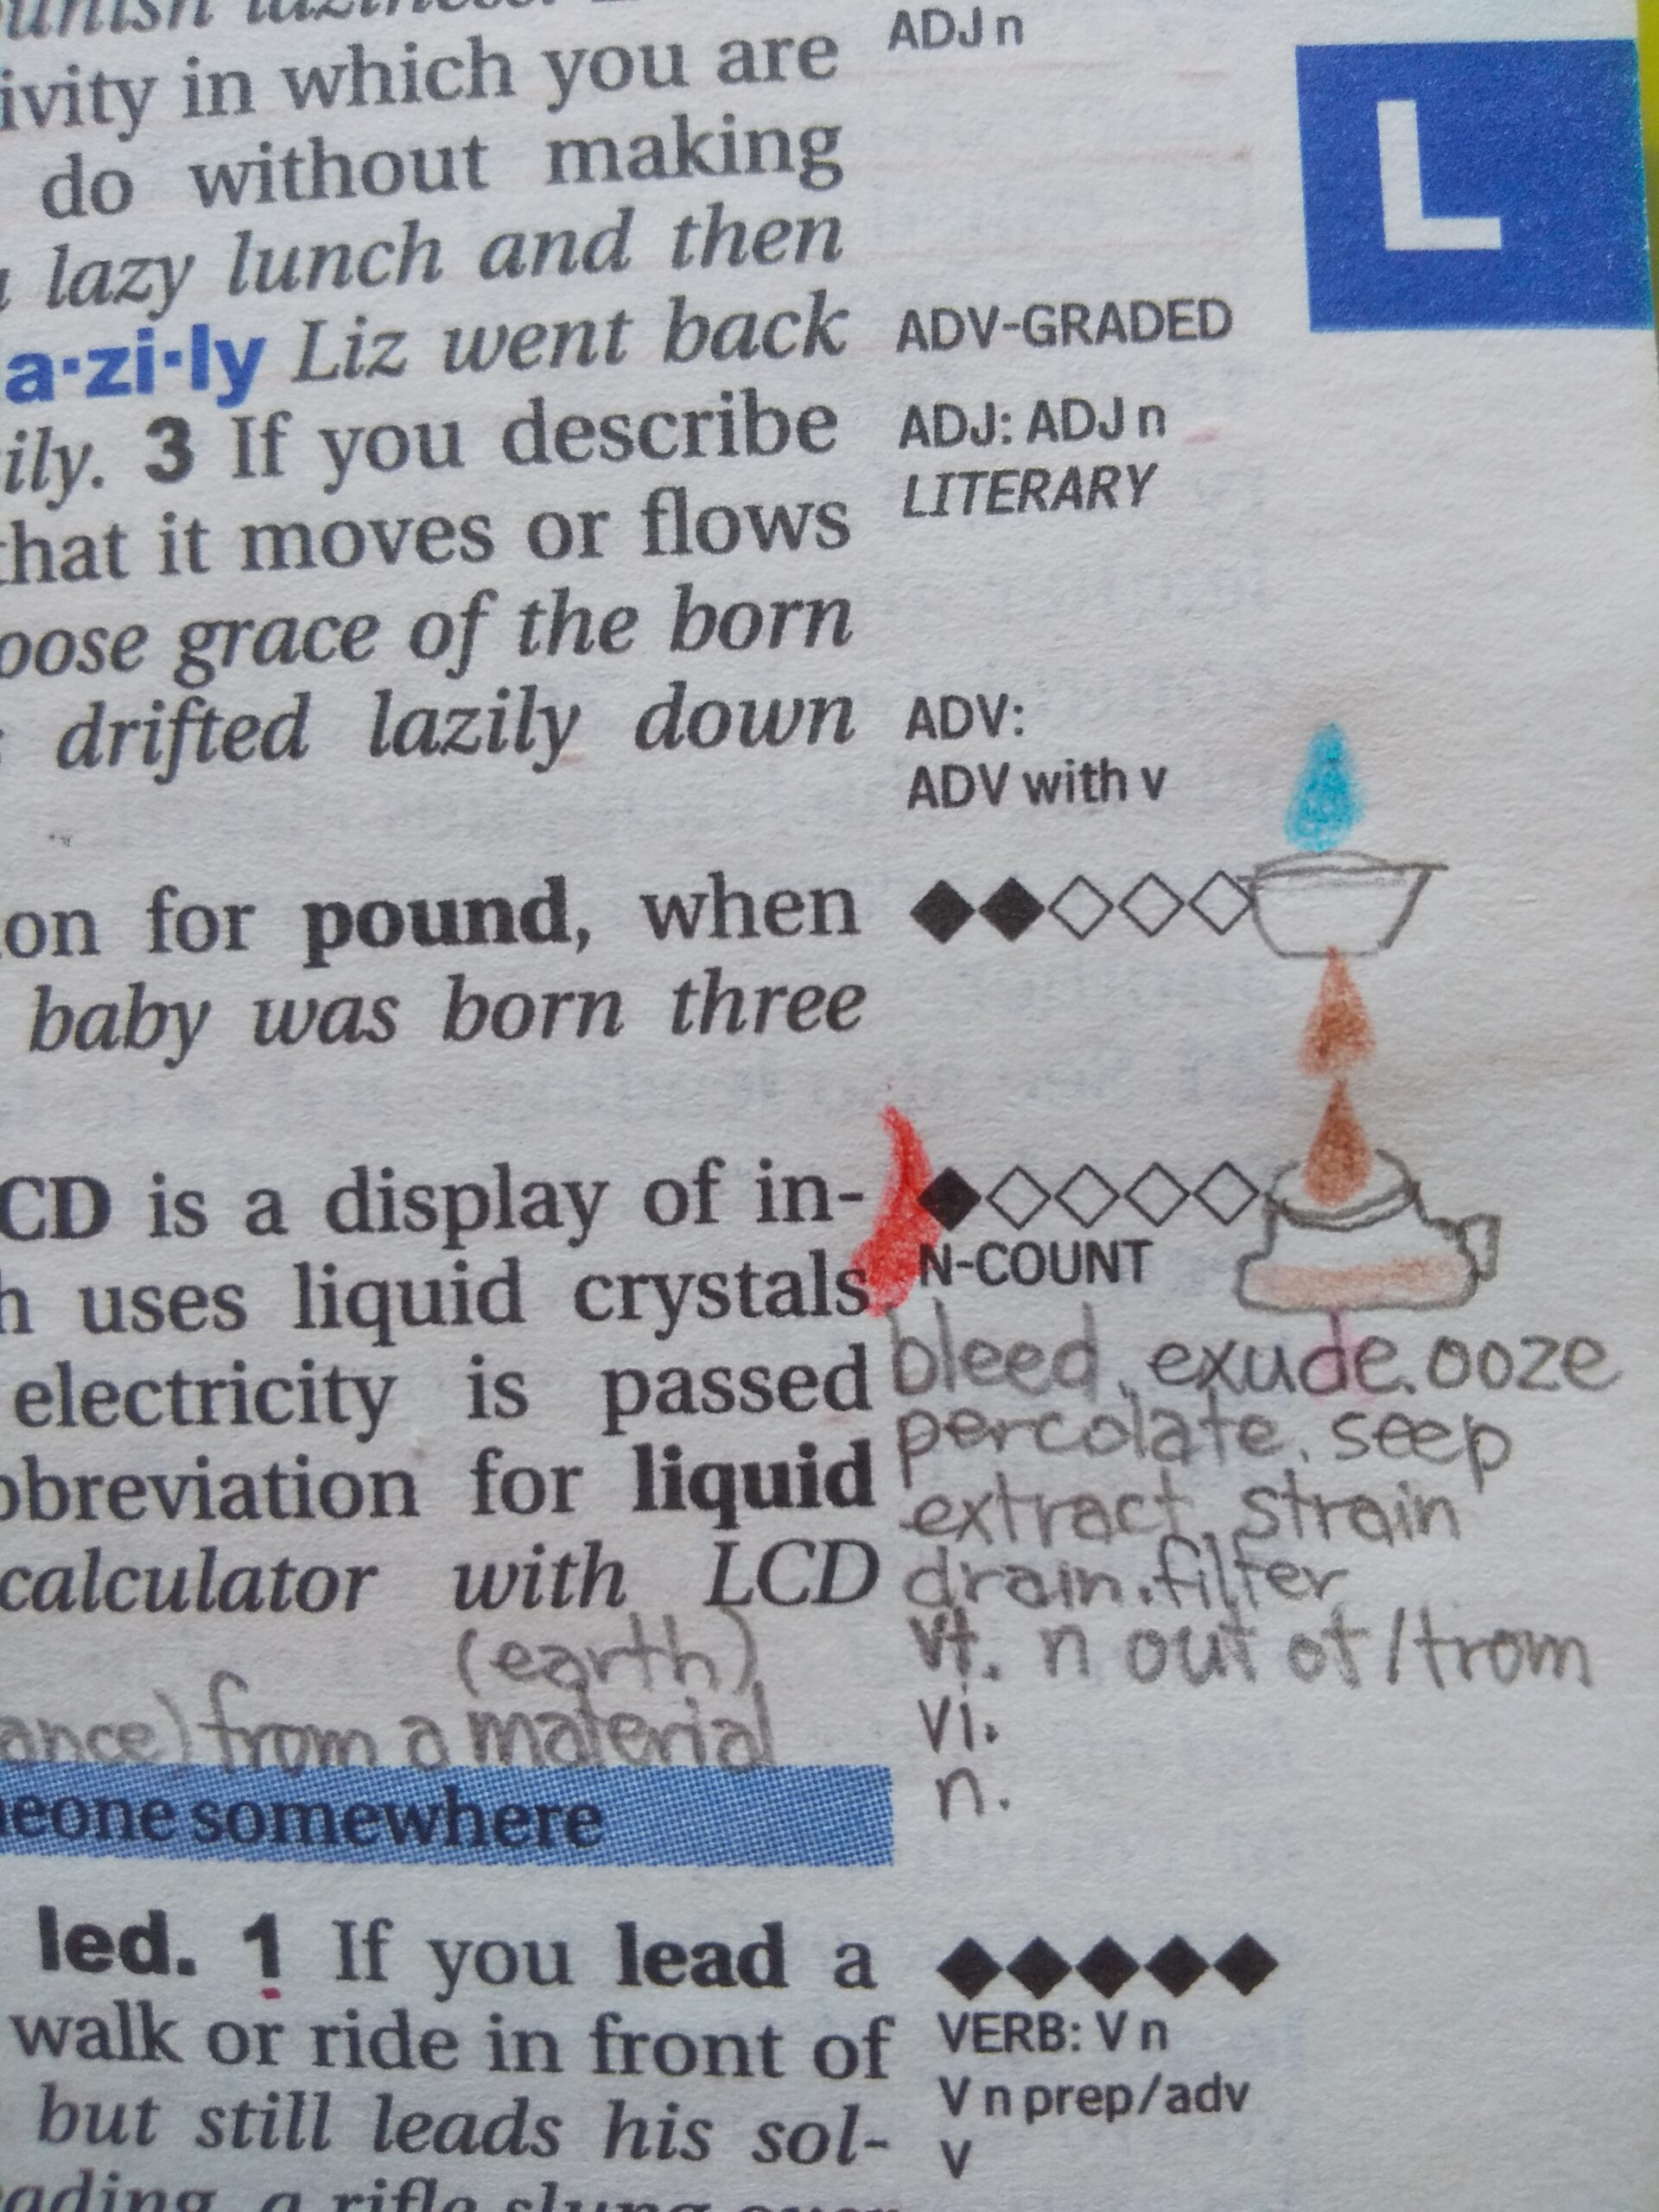 ADJ n
ivity in which you are
L
do without making
lazy lunch and then
a·zi·ly Liz went back
ADV-GRADED
ily. 3 If you describe
ADJ: ADJ n
LITERARY
that it moves or flows
oose grace of the born
drifted lazily down
ADV:
ADV with v
on for pound, when
◆◆◇◇◇
baby was born three
CD is a display of in-
◆◇◇◇◇
N-COUNT
h uses liquid crystals
bleed. exude. ooze
electricity is passed
percolate. seep
bbreviation for liquid
extract. strain
calculator with LCD
drain. filter
(earth)
vt. n out of/from
ance) from a material
vi.
n.
eone somewhere
led. 1 If you lead a
◆◆◆◆◆
walk or ride in front of
VERB: V n
V n prep/adv
but still leads his sol-
V
ading, a rifle slung over